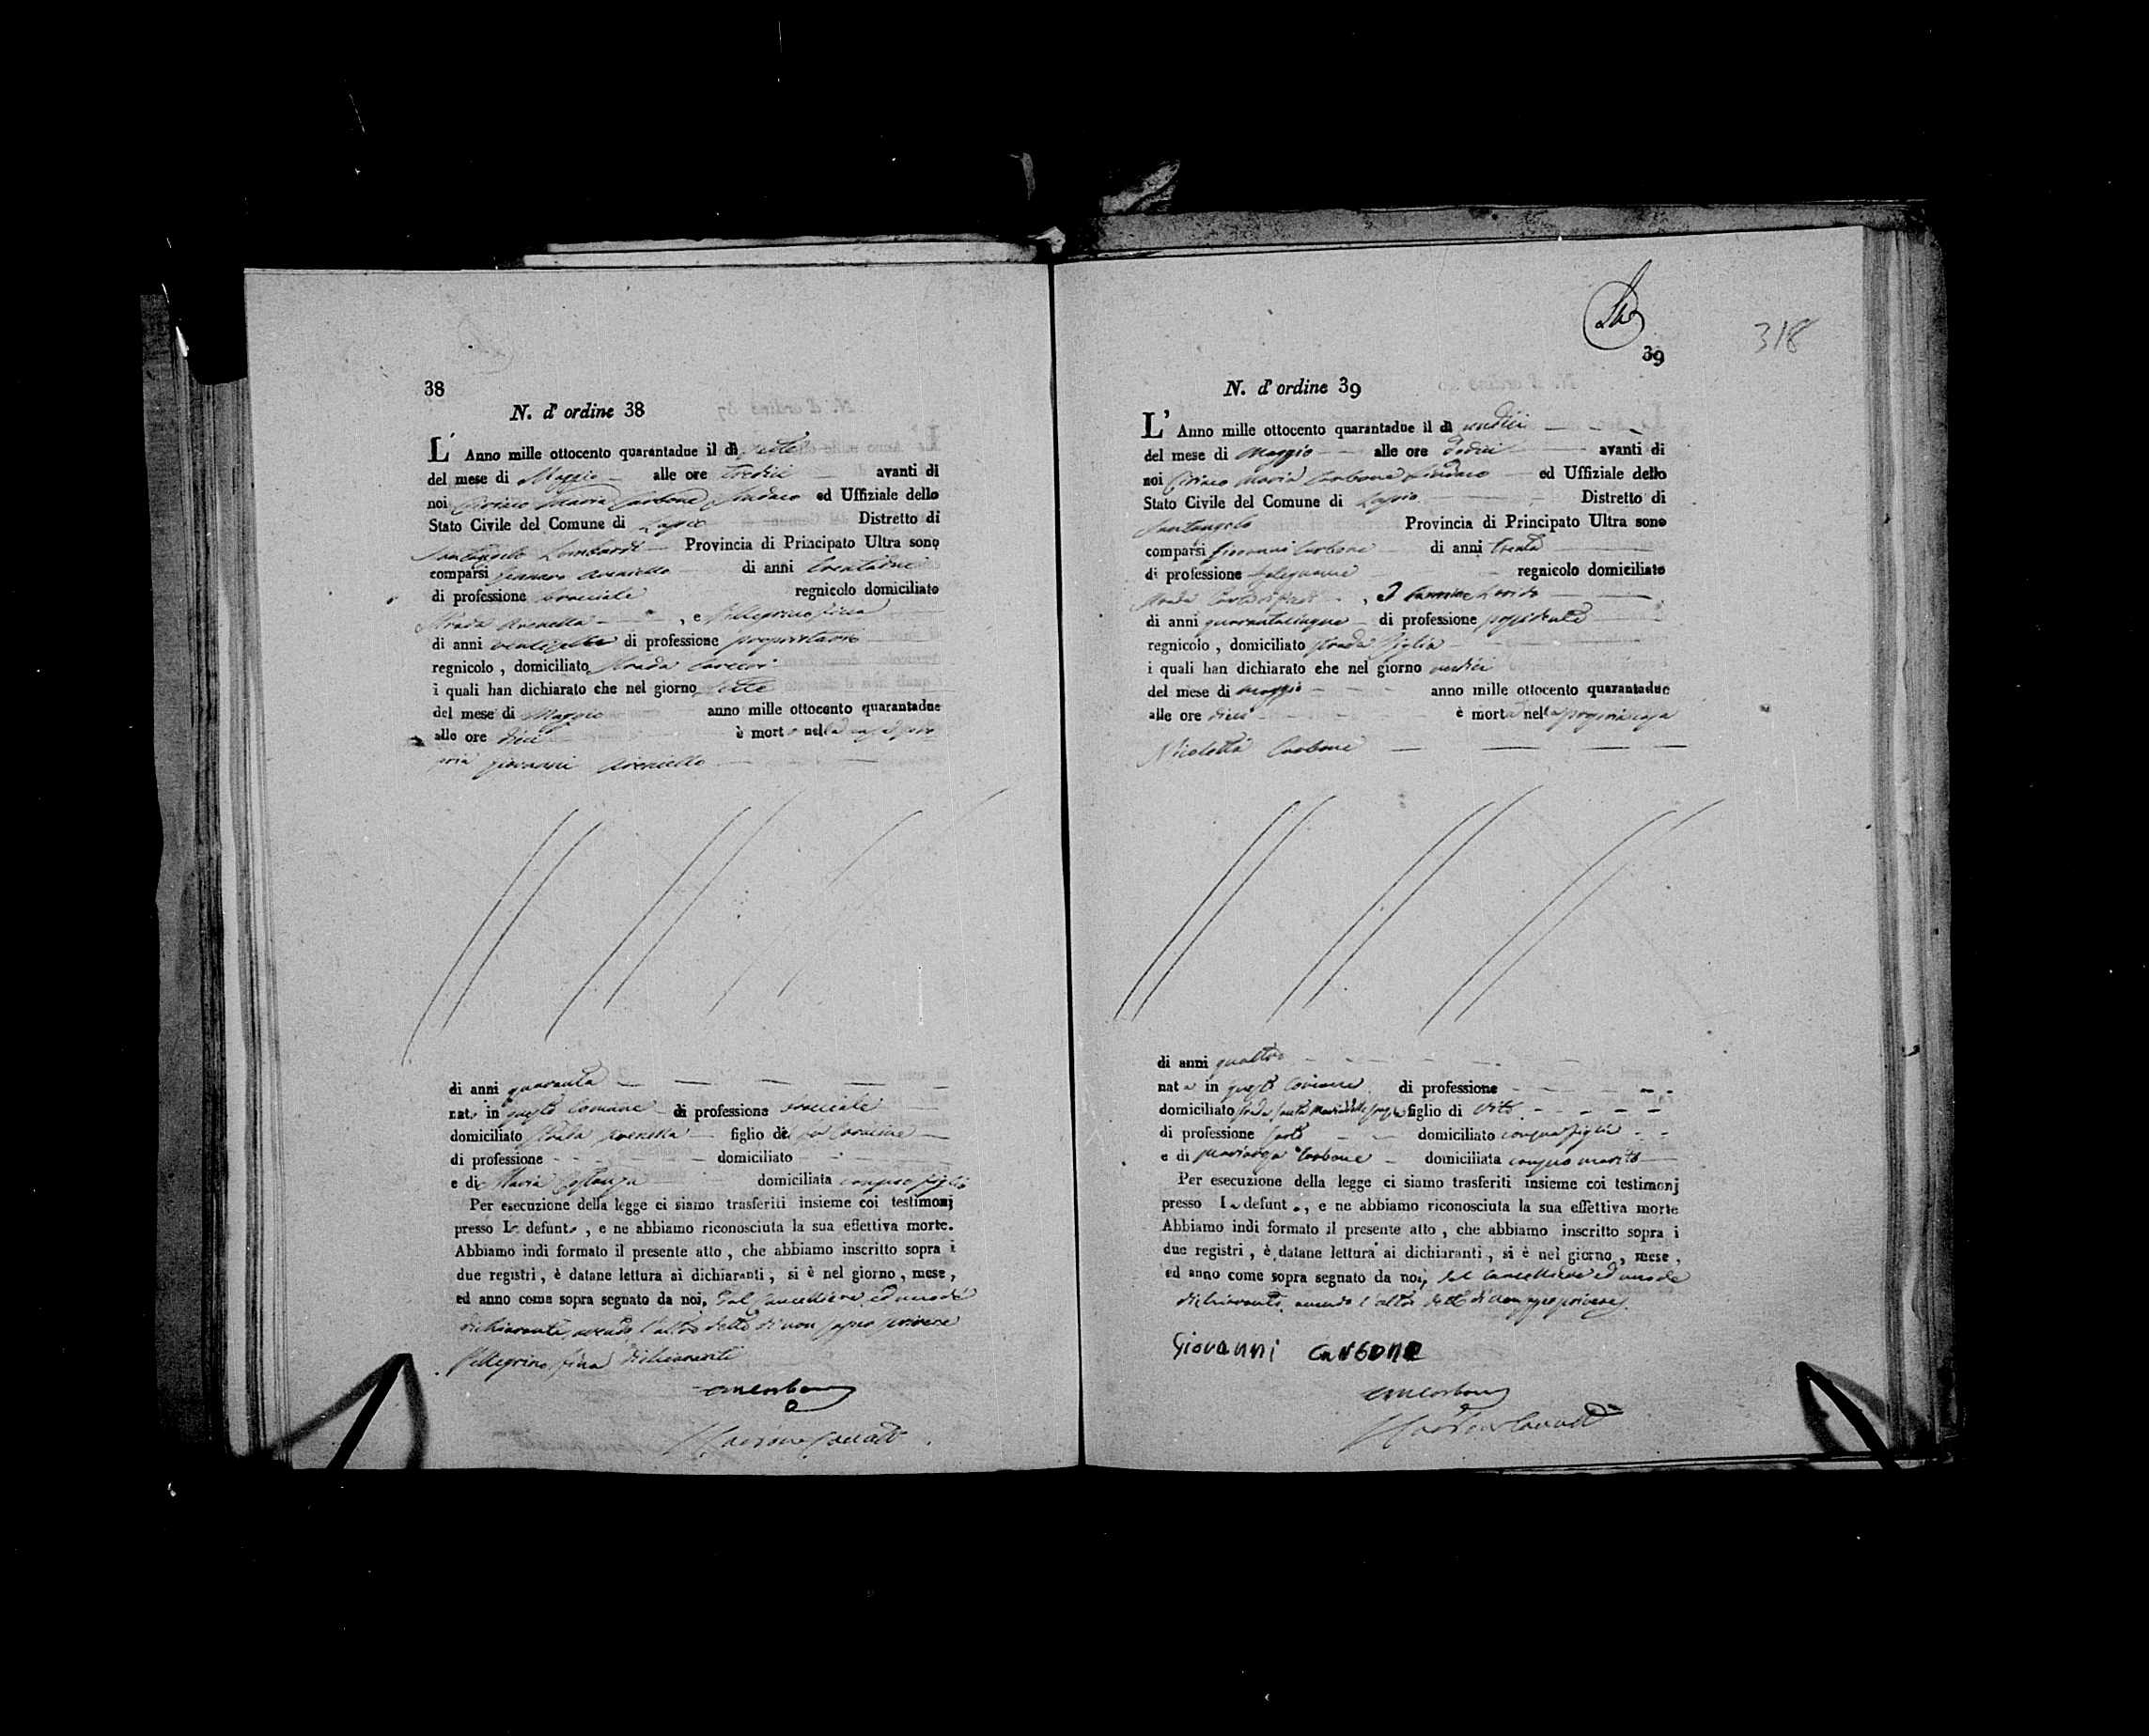 38
N. d' ordine 38
L' Anno mille ottocento quarantadue il dì sette
del mese di Maggio alle ore tredici avanti di
noi Ciriaco Maria Carbone Sindaco ed Uffiziale dello
Stato Civile del Comune di Lapio Distretto di
Santangelo Lombardi Provincia di Principato Ultra sono
comparsi Gennaro Areniello di anni trentadue
di professione bracciale regnicolo domiciliato
Strada , e Pellegrino
di anni di professione proprietario
regnicolo , domiciliato strada
i quali han dichiarato che nel giorno sette
del mese di Maggio anno mille ottocento quarantadue
alle ore dieci è morto nella casa pro
pria Giovanni Areniello
di anni quaranta
nato in questo Comune di professione bracciale
domiciliato strada figlio di fu Carmine
di professione domiciliato
e di Maria domiciliata con suo figlio
Per esecuzione della legge ci siamo trasferiti insieme coi testimonj
presso Lo defunto , e ne abbiamo riconosciuta la sua effettiva morte.
Abbiamo indi formato il presente atto , che abbiamo inscritto sopra i
due registri , è datane lettura ai dichiaranti , si è nel giorno , mese ,
ed anno come sopra segnato da noi, dal Cancelliere, ed uno de
dichiaranti, avendo l'altro detto di non sapere scrivere
Pellegrino dichiarante
39
318
N. d' ordine 39
L' Anno mille ottocento quarantadue il dì undici
del mese di Maggio alle ore dodici avanti di
noi Ciriaco Maria Carbone Sindaco ed Uffiziale dello
Stato Civile del Comune di Lapio Distretto di
Santangelo Provincia di Principato Ultra sono
comparsi Giovanni Carbone di anni trenta
di professione falegname regnicolo domiciliato
Strada , e Carmine
di anni quarantacinque di professione possidente
regnicolo , domiciliato strada
i quali han dichiarato che nel giorno undici
del mese di Maggio anno mille ottocento quarantadue
alle ore dieci è morta nella propria casa
Nicoletta Carbone
di anni quattro
nata in questo Comune di professione
domiciliato figlio di Vito
di professione sarto domiciliato con sua figlia
e di Carbone domiciliata con suo marito
Per esecuzione della legge ci siamo trasferiti insieme coi testimonj
presso La defunta , e ne abbiamo riconosciuta la sua effettiva morte
Abbiamo indi formato il presente atto , che abbiamo inscritto sopra i
due registri , è datane lettura ai dichiaranti , si è nel giorno , mese ,
ed anno come sopra segnato da noi, dal Cancelliere ed uno de
dichiaranti, avendo l'altro detto di non sapere scrivere
Giovanni Carbone